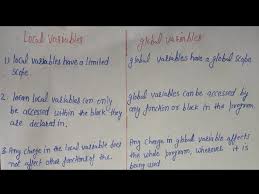 Local Variables
1) local variables have a limited
scope.
2. local variables can only
be accessed within the block they
are declared in.
3. Any change in the local variable does
not affect other functions of the
global variables
global variables have a global scope
global variables can be accessed by
any function or block in the program.
Any change in global variable affects
the whole program, wherever it is
being used